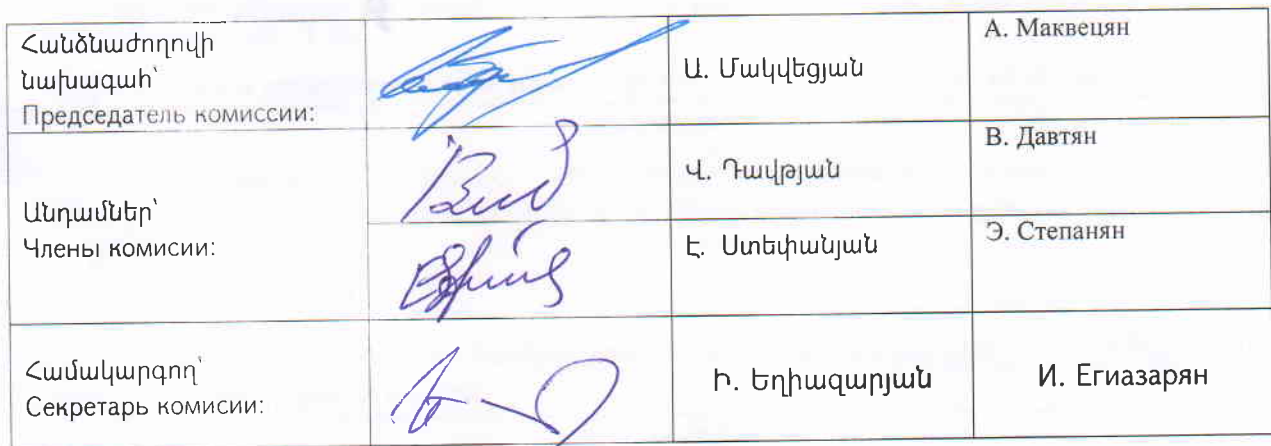 Հանձնաժողովի
նախագահ՝
Председатель комиссии:
Ա. Մակվեցյան
А. Маквецян
Անդամներ՝
Члены комисии:
Վ. Դավթյան
В. Давтян
Է. Ստեփանյան
Э. Степанян
Համակարգող՝
Секретарь комисии:
Ի. Եղիազարյան
И. Егиазарян